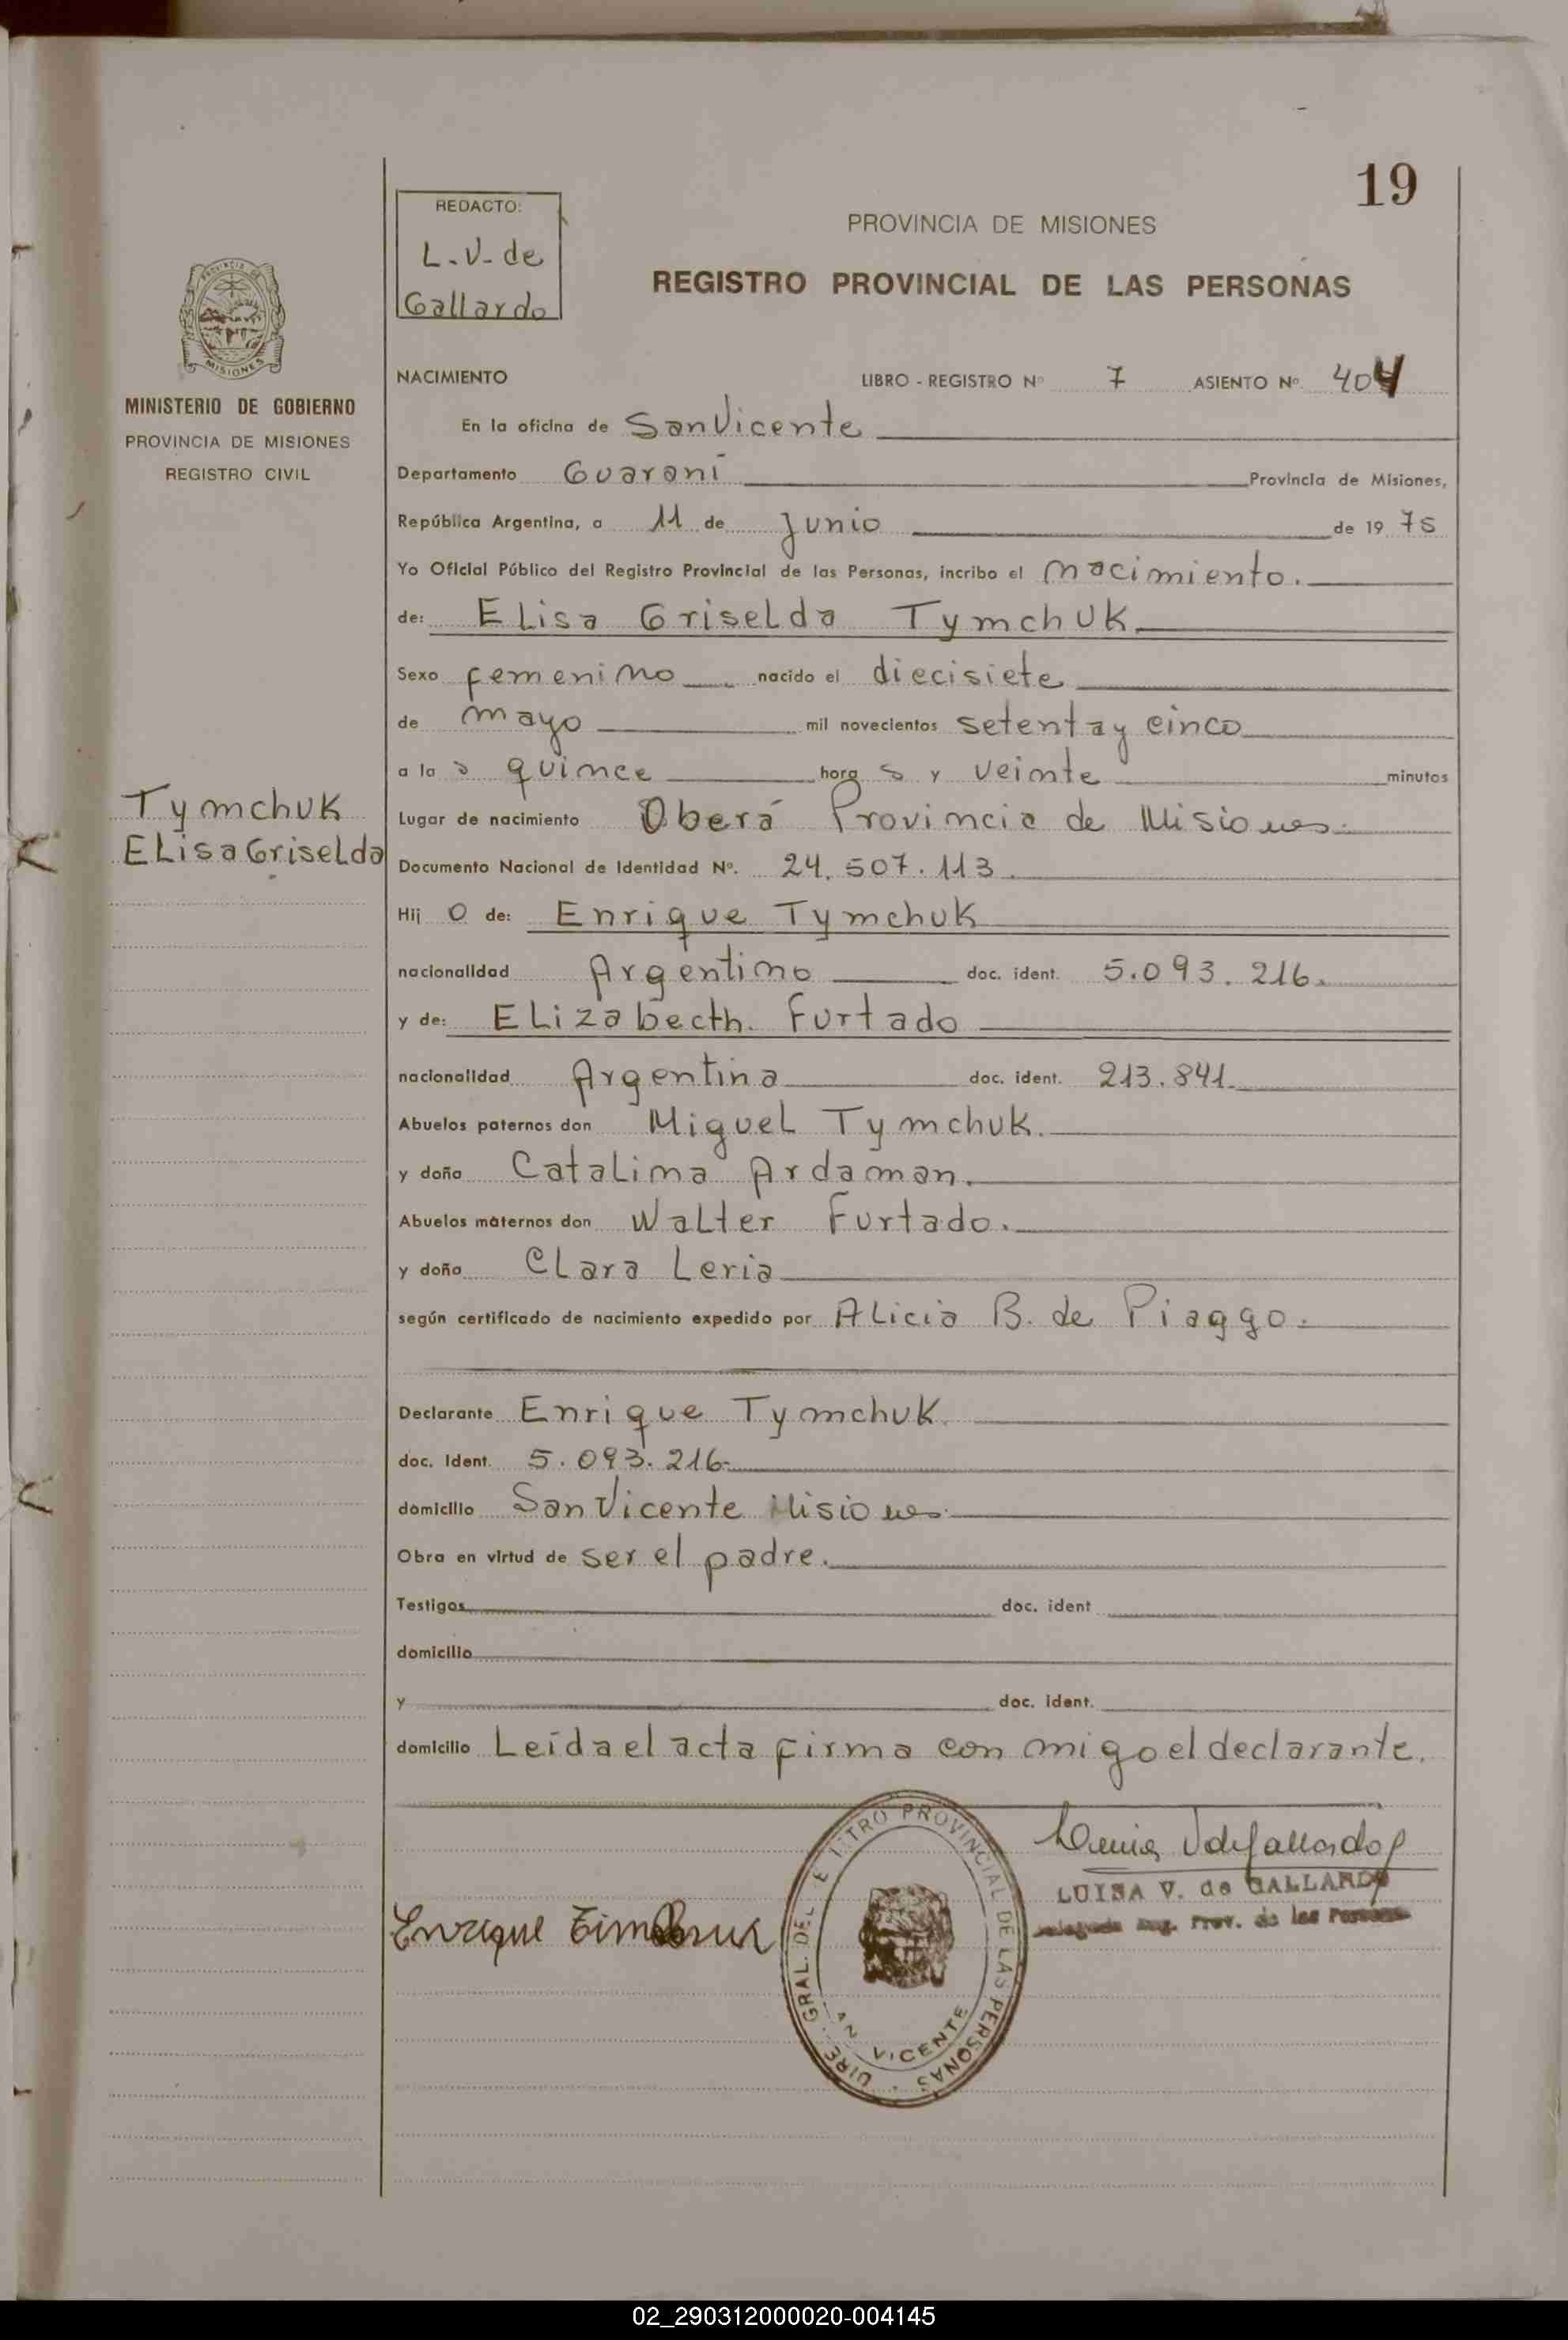 19
REDACTO:
L.V. de
Gallardo
PROVINCIA DE MISIONES
REGISTRO PROVINCIAL DE LAS PERSONAS
PROVINCIA DE
MISIONES
MINISTERIO DE GOBIERNO
PROVINCIA DE MISIONES
REGISTRO CIVIL
NACIMIENTO LIBRO - REGISTRO Nº 7 ASIENTO Nº 404
En la oficina de San Vicente
Departamento Guaraní Provincia de Misiones,
República Argentina, a 11 de Junio de 1975
Yo Oficial Público del Registro Provincial de las Personas, incribo el nacimiento.
de: Elisa Griselda Tymchuk
Sexo femenino nacido el diecisiete
de mayo mil novecientos setenta y cinco
a las quince horas y veinte minutos
Tymchuk
Elisa Griselda
Lugar de nacimiento Oberá Provincia de Misiones.
Documento Nacional de Identidad Nº. 24.507.113
Hijo de: Enrique Tymchuk
nacionalidad Argentino doc. ident. 5.093.216.
y de: Elizabecth. Furtado
nacionalidad Argentina doc. ident. 213.841.
Abuelos paternos don Miguel Tymchuk.
y doña Catalina Ardaman.
Abuelos maternos don Walter Furtado.
y doña Clara Leria
según certificado de nacimiento expedido por Alicia B. de Piaggo.
Declarante Enrique Tymchuk.
doc. Ident. 5.093.216.
domicilio San Vicente Misiones.
Obra en virtud de ser el padre.
Testigos doc. ident
domicilio
y doc. ident.
domicilio Leída el acta firma con migo el declarante.
LUISA V. de GALLARDO
Prov. de las
Enrique
GRAL. DEL PROVINCIAL DE LAS PERSONAS
VICENTE
02_290312000020-004145